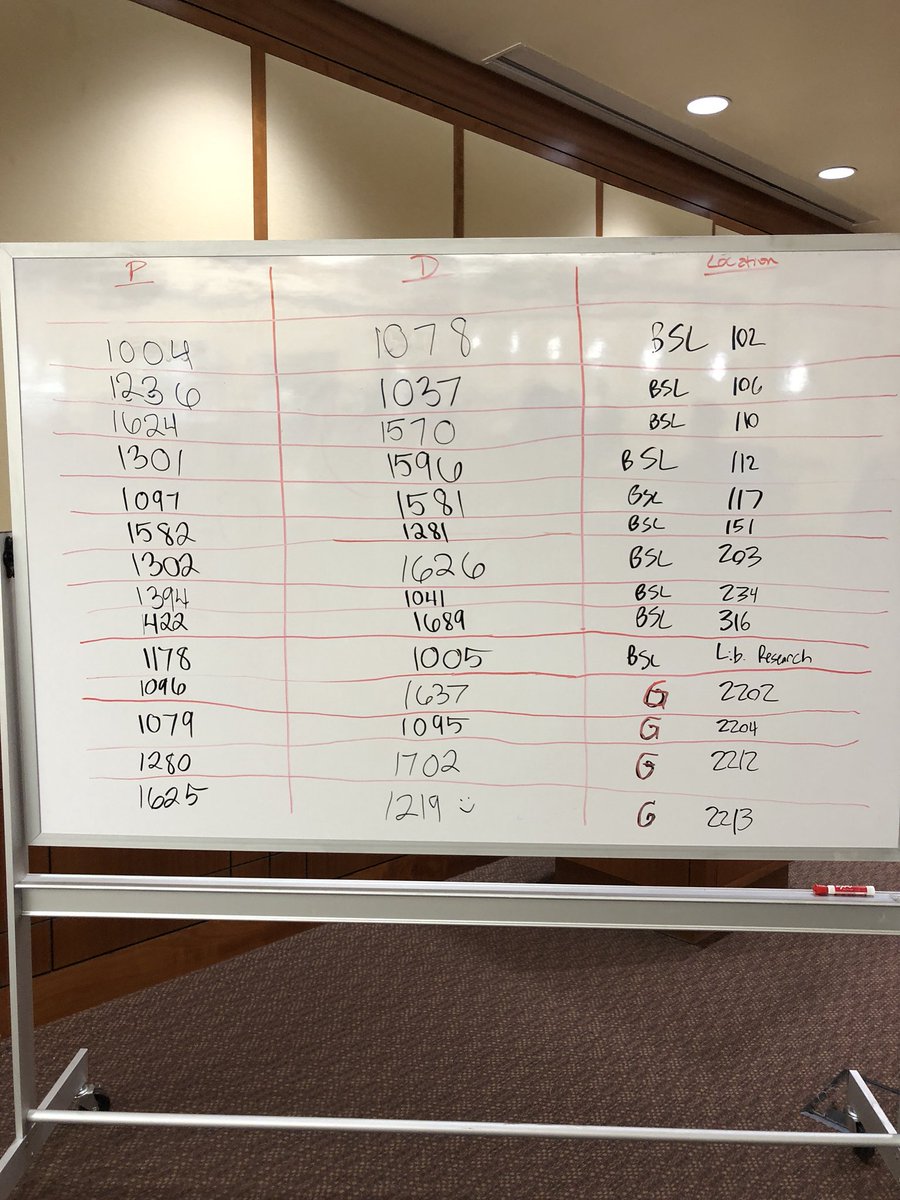 P D Location
1004 1078 BSL 102
1236 1037 BSL 106
1624 1570 BSL 110
1301 1596 BSL 112
1097 1581 BSL 117
1582 1281 BSL 151
1302 1626 BSL 203
1394 1041 BSL 234
1422 1689 BSL 316
1178 1005 BSL Lib. Research
1096 1637 G 2202
1079 1095 G 2204
1280 1702 G 2212
1625 1219 :) G 2213